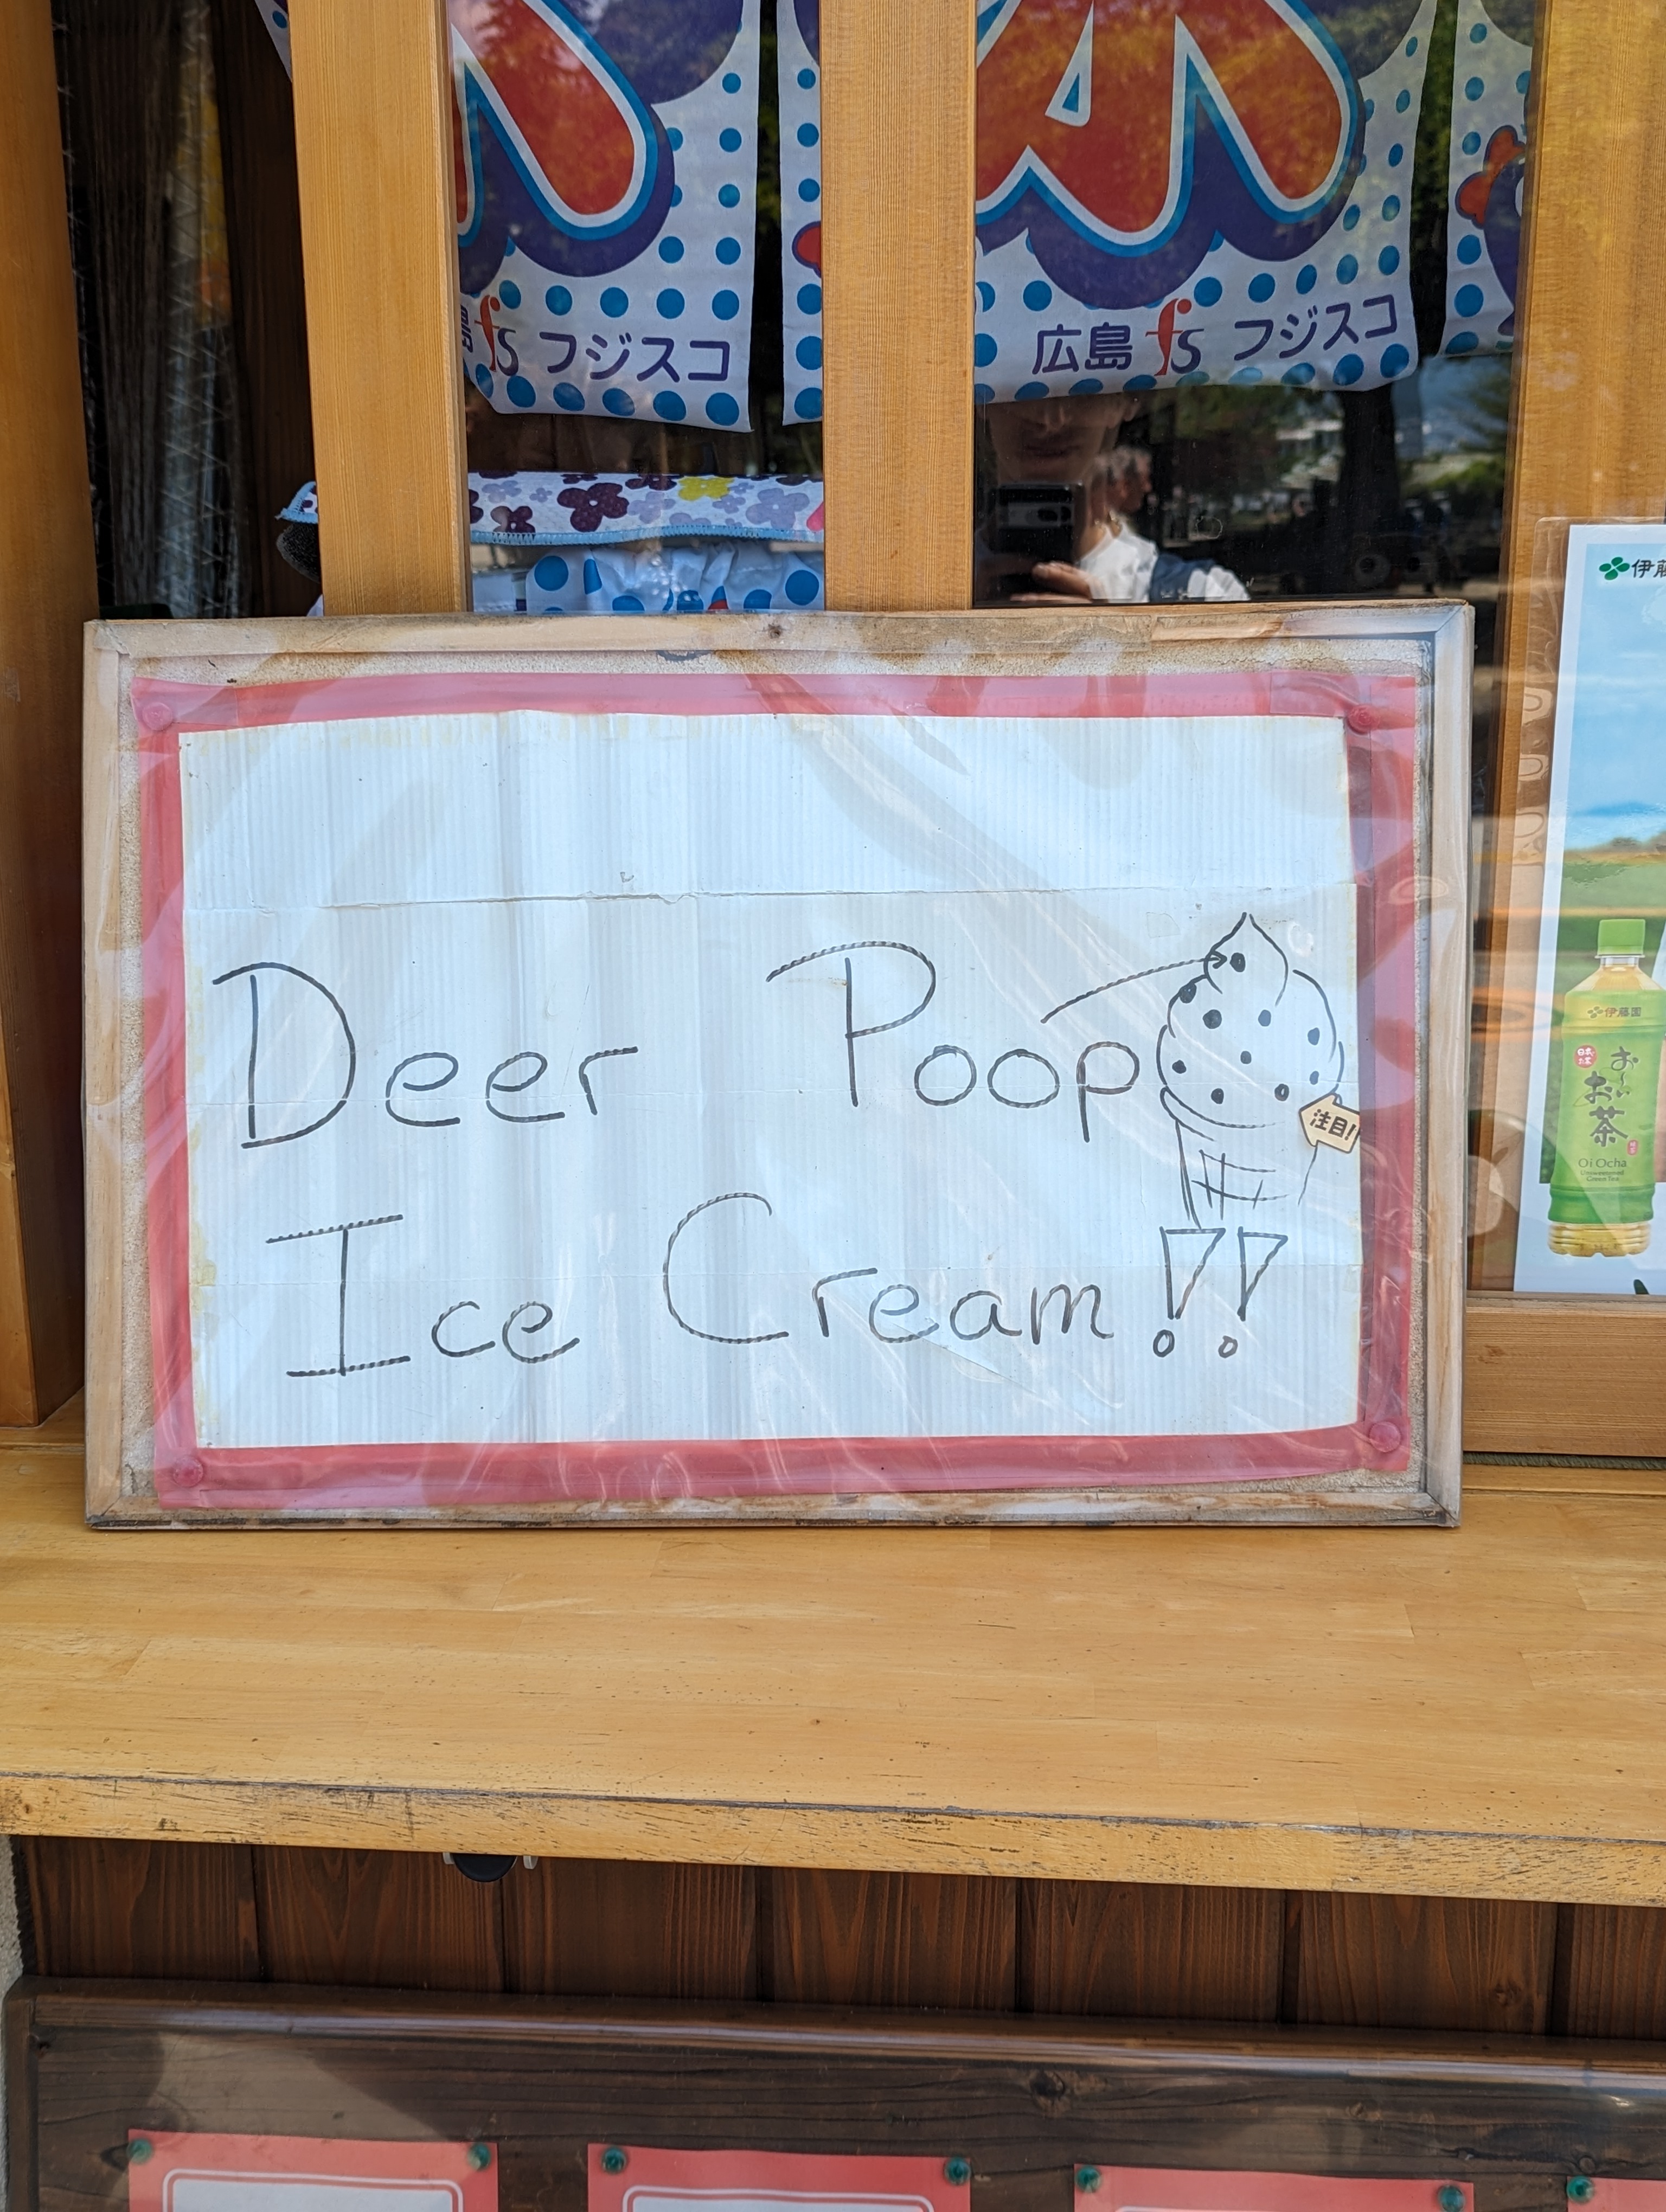 広島 fs フジスコ
広島 fs フジスコ
Deer Poop
注目!
Ice Cream!!
伊藤園
お〜い
お茶
Oi Ocha
Unsweetened
Green Tea